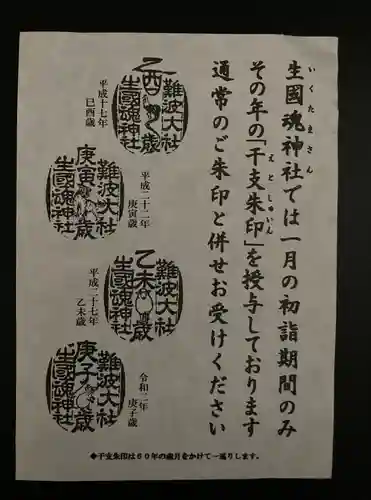 いくたまさん
生國魂神社では一月の初詣期間のみ
えとしゅいん
その年の「干支朱印」を授与しております
通常のご朱印と併せお受けください
難波大社
乙酉歳
生國魂神社
平成十七年
乙酉歳
難波大社
庚寅歳
生國魂神社
平成二十二年
庚寅歳
難波大社
乙未歳
生國魂神社
平成二十七年
乙未歳
難波大社
庚子歳
生國魂神社
令和二年
庚子歳
◆干支朱印は60年の歳月をかけて一巡りします。